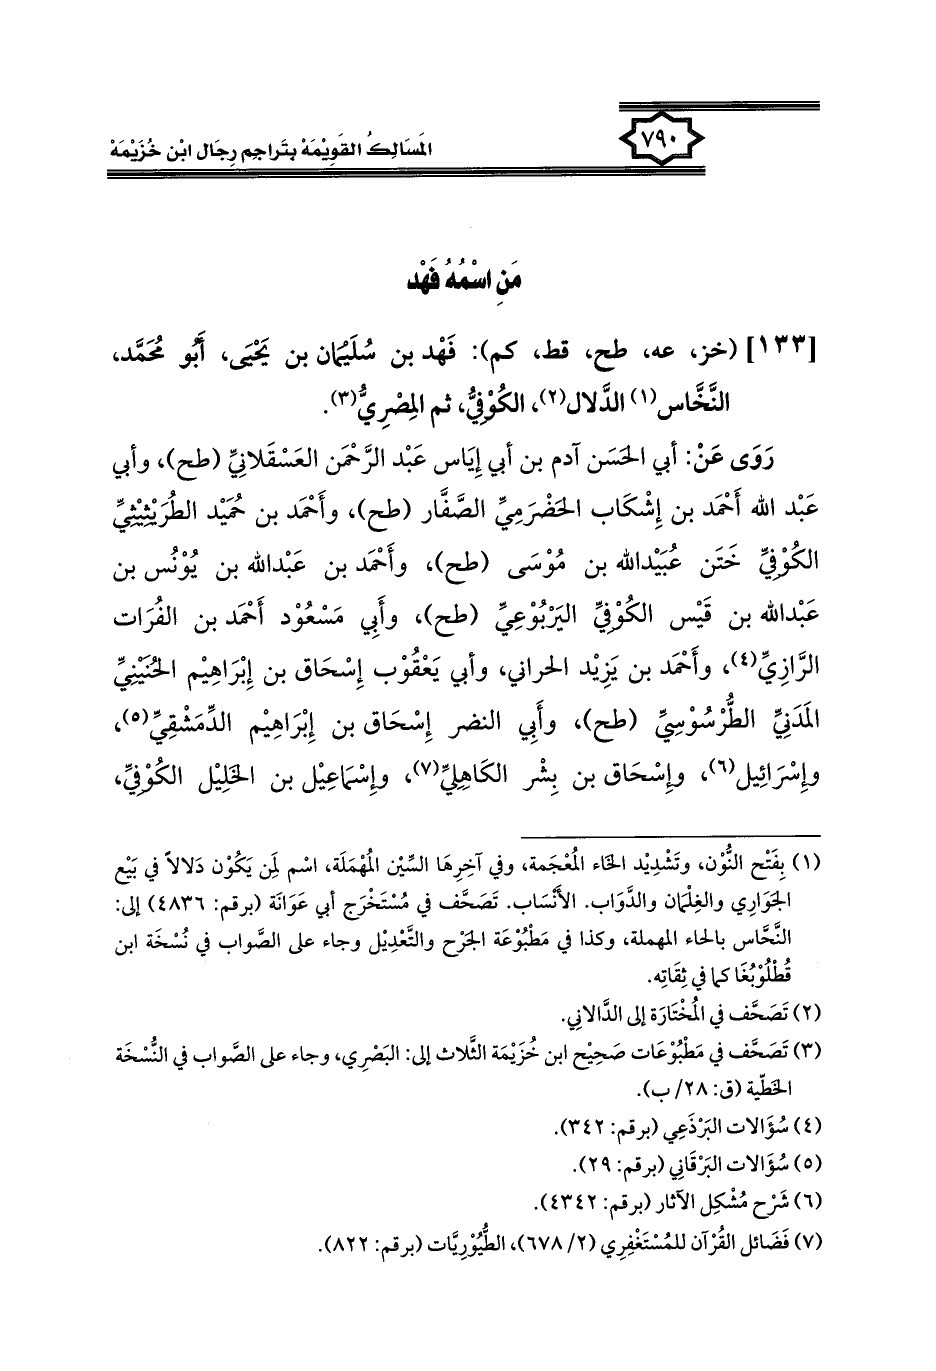 ٧٩٠
المَسَالِكُ القَوِيْمَةْ بتَراجِم رِجَال ابْن خُزَيْمَةْ
مَنِ اسْمُهُ فَهْد
[١٣٣] (خز، عه، طح، قط، كم): فَهْد بن سُلَيْمَان بن يَحْيَى، أَبُو مُحَمَّد،
النَّخَّاس(١) الدَّلال(٢)، الكُوْفِيُّ، ثم المِصْرِيُّ(٣).
رَوَى عَنْ: أبي الحَسَن آدم بن أبي إيَاس عَبْد الرَّحْمَن العَسْقلانِيِّ (طح)، وأبي
عَبْد الله أَحْمَد بن إِشْكَاب الحَضْرَمِيِّ الصَّفَّار (طح)، وأَحْمَد بن حُمَيْد الطُرَيْثِيْثِيِّ
الكُوْفِيِّ خَتَن عُبَيْدالله بن مُوْسَى (طح)، وأَحْمَد بن عَبْدالله بن يُوْنُس بن
عَبْدالله بن قَيْس الكُوْفِيِّ اليَرْبُوْعِيِّ (طح)، وأَبِي مَسْعُوْد أَحْمَد بن الفُرَات
الرَّازِيِّ(٤)، وأَحْمَد بن يَزِيْد الحراني، وأبي يَعْقُوْب إِسْحَاق بن إِبْرَاهِيْم الحُنَيْنِيِّ
المَدَنِيِّ الطُّرْسُوْسِيِّ (طح)، وأَبِي النضر إِسْحَاق بن إِبْرَاهِيْم الدِّمَشْقِيِّ(٥)،
وإِسْرَائِيل(٦)، وإِسْحَاق بن بِشْر الكَاهِلِيِّ(٧)، وإِسْمَاعِيْل بن الخَلِيْل الكُوْفِيِّ،
(١) بِفَتْح النُّوْن، وتَشْدِيْد الخَاء المُعْجَمة، وفي آخِرِهَا السِّيْن المُهْمَلَة، اسْم لِمَن يَكُوْن دَلالاً في بَيْع
الجَوَارِي والغِلْمَان والدَّوَاب. الأَنْسَاب. تَصَحَّف في مُسْتَخْرَج أبي عَوَانَة (برقم: ٤٨٣٦) إلى:
النَّحَّاس بالحاء المهملة، وكذا في مَطْبُوْعَة الجَرْح والتَّعْدِيْل وجاء على الصَّواب في نُسْخَة ابن
قُطْلُوْبُغَا كما في ثِقَاتِه.
(٢) تَصَحَّف في المُخْتَارَة إلى الدَّالاني.
(٣) تَصَحَّف في مَطْبُوْعَات صَحِيْح ابن خُزَيْمَة الثَّلاث إلى: البَصْرِي، وجاء على الصَّواب في النُّسْخَة
الخَطِّية (ق: ٢٨/ ب).
(٤) سُؤَالات البَرْذَعِي (برقم: ٣٤٢).
(٥) سُؤَالات البَرْقَانِي (برقم: ٢٩).
(٦) شَرْح مُشْكِل الآثار (برقم: ٤٣٤٢).
(٧) فَضَائل القُرْآن للمُسْتَغْفِرِي (٢/ ٦٧٨)، الطُّيُوْرِيَّات (برقم: ٨٢٢).